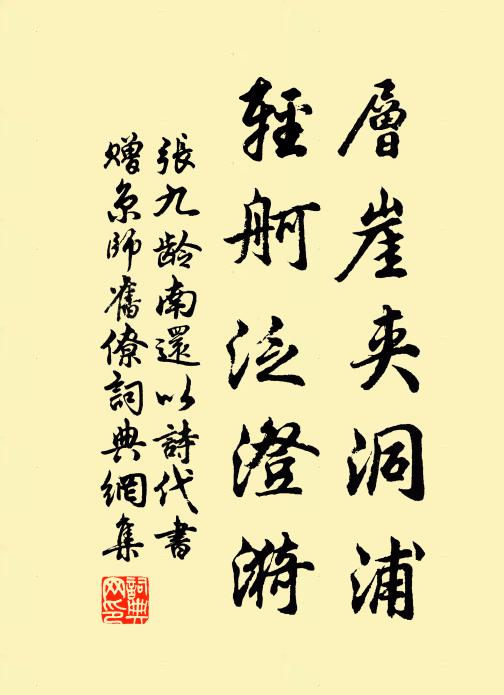 層崖夾洞浦
輕舸泛澄漪
張九齡南還以詩代書
贈京師舊僚詞典網集